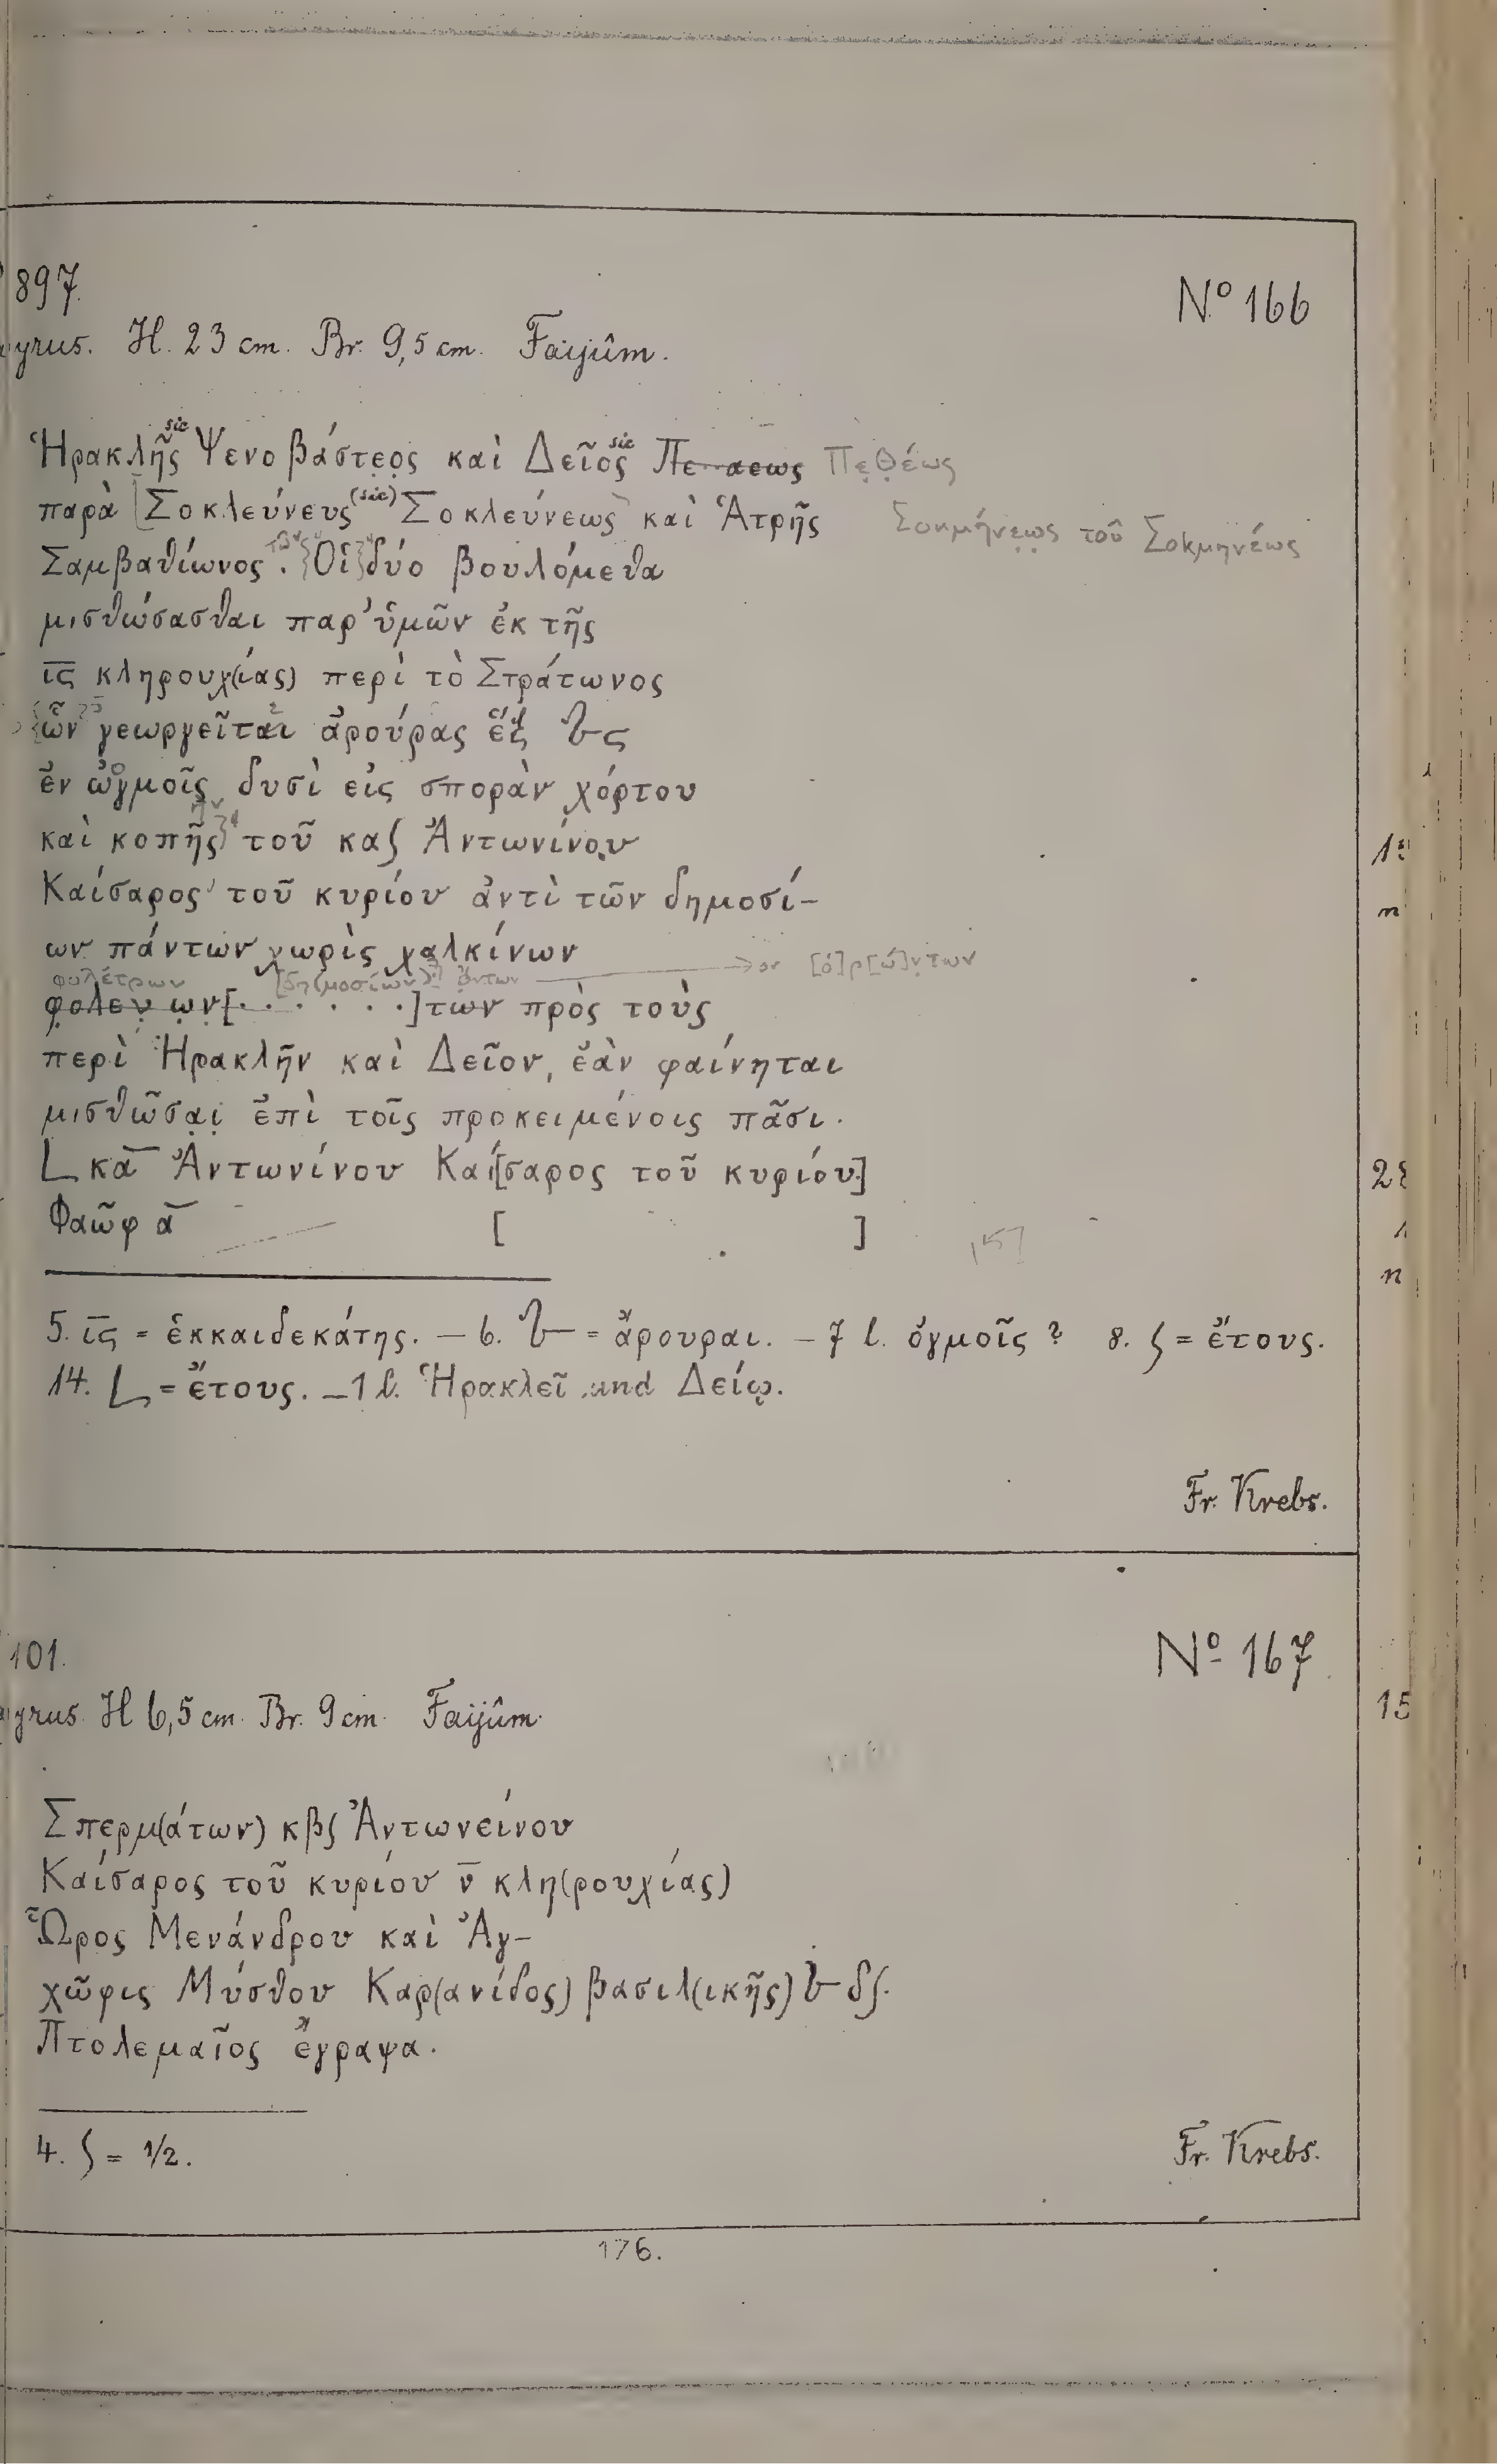 897.
Nº 166
yrus. H. 23 cm. Br. 9,5 cm. Faijûm.
Ἡρακλῆς sic Ψενοβάστεος καὶ Δεῖος sic Πε··αεως Πεθέως
παρὰ [Σοκλεύνευς (sic) Σοκλεύνεως καὶ Ἁτρῆς Σοκμήνεως τοῦ Σοκμηνέως
Σαμβαθίωνος. τῶν {Οἱ} δύο βουλόμεθα
μισθώσασθαι παρ' ὑμῶν ἐκ τῆς
ιϛ κληρουχ(ίας) περὶ τὸ Στράτωνος
ὧν γεωργεῖται ἀρούρας ἕξ 𐅵 ϛ
ἐν ὠγμοῖς δυσὶ εἰς σπορὰν χόρτου
καὶ κοπῆς τοῦ κα ʃ Ἀντωνίνου
Καίσαρος τοῦ κυρίου ἀντὶ τῶν δημοσί-
ων πάντων χωρὶς χαλκίνων
φολέτρων [δη(μοσίων)?] ὄντων → or [ὁ]ρ[ώ]ντων
φολεν ων[· · · · · ·]των πρὸς τοὺς
περὶ Ἡρακλῆν καὶ Δεῖον, ἐὰν φαίνηται
μισθῶσαι ἐπὶ τοῖς προκειμένοις πᾶσι.
L κα Ἀντωνίνου Καί[σαρος τοῦ κυρίου]
Φαῶφ α [ ] 157
5. ιϛ = ἑκκαιδεκάτης. — 6. 𐅵 = ἄρουραι. — 7 l. ὄγμοῖς ? 8. ʃ = ἔτους.
14. L = ἔτους. — 1 l. Ἡρακλεῖ und Δείῳ.
Fr. Krebs.
101.
Nº 167
yrus. H 6,5 cm. Br. 9 cm. Faijûm.
Σπερμ(άτων) κβ ʃ Ἀντωνείνου
Καίσαρος τοῦ κυρίου ν̅ κλη(ρουχίας)
Ὧρος Μενάνδρου καὶ Ἀγ-
χῶφις Μύσθου Καρ(ανίδος) βασιλ(ικῆς) 𐅵 δʃ.
Πτολεμαῖος ἔγραψα.
4. ʃ = 1/2.
Fr. Krebs.
176.